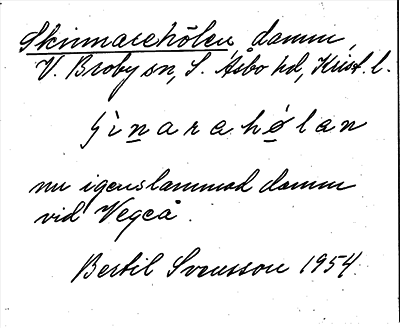 Skinnarehölen, damm,
V. Broby sn, S. Åsbo hd, Krist. l.
ʃìnarahølan
nu igenslammad damm
vid Vegeå.
Bertil Svensson 1954.